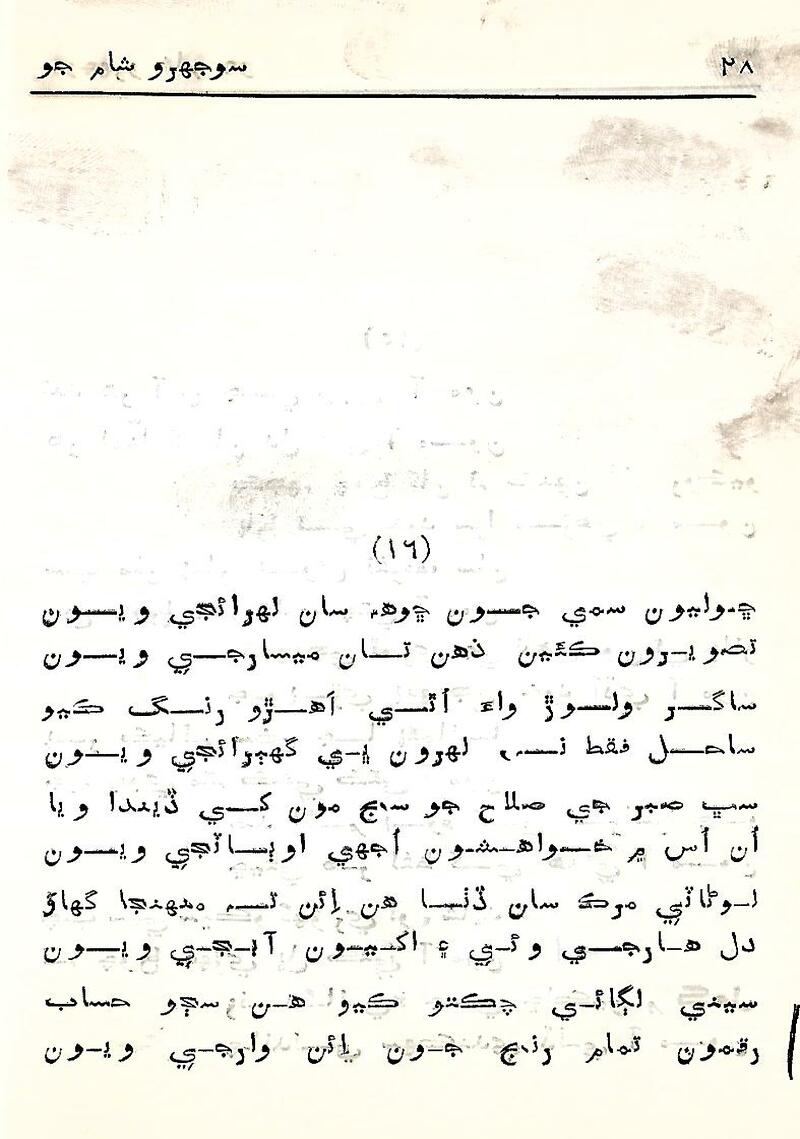 ٢٨
سوجهرو شام جو
(١٦)
ڇوليون سمي جون ڇوهه سان لهرائجي ويون
تصويرون ڪٿين ذهن تان ميسارجي ويون
ساگر ولوڙ واءَ اُٿي اَهڙو رنگ ڪيو
ساحل فقط نہ، لهرون ۽ي گهٻرائجي ويون
سڀ صبر جي صلاح جو سج مون کي ڏيندا ويا
اُن اُس ۾ خواهشون اُجهي اوٻاٽجي ويون
لوڻاٽي مرڪ سان ڏٺا هن اِئن تہ منهنجا گهاوَ
دل هارجي وئي ۽ اکيون آڀجي ويون
سيني لڳائي چڪتو ڪيو هن سڄو حساب
رقمون تمام رنج جون اِئن وارجي ويون